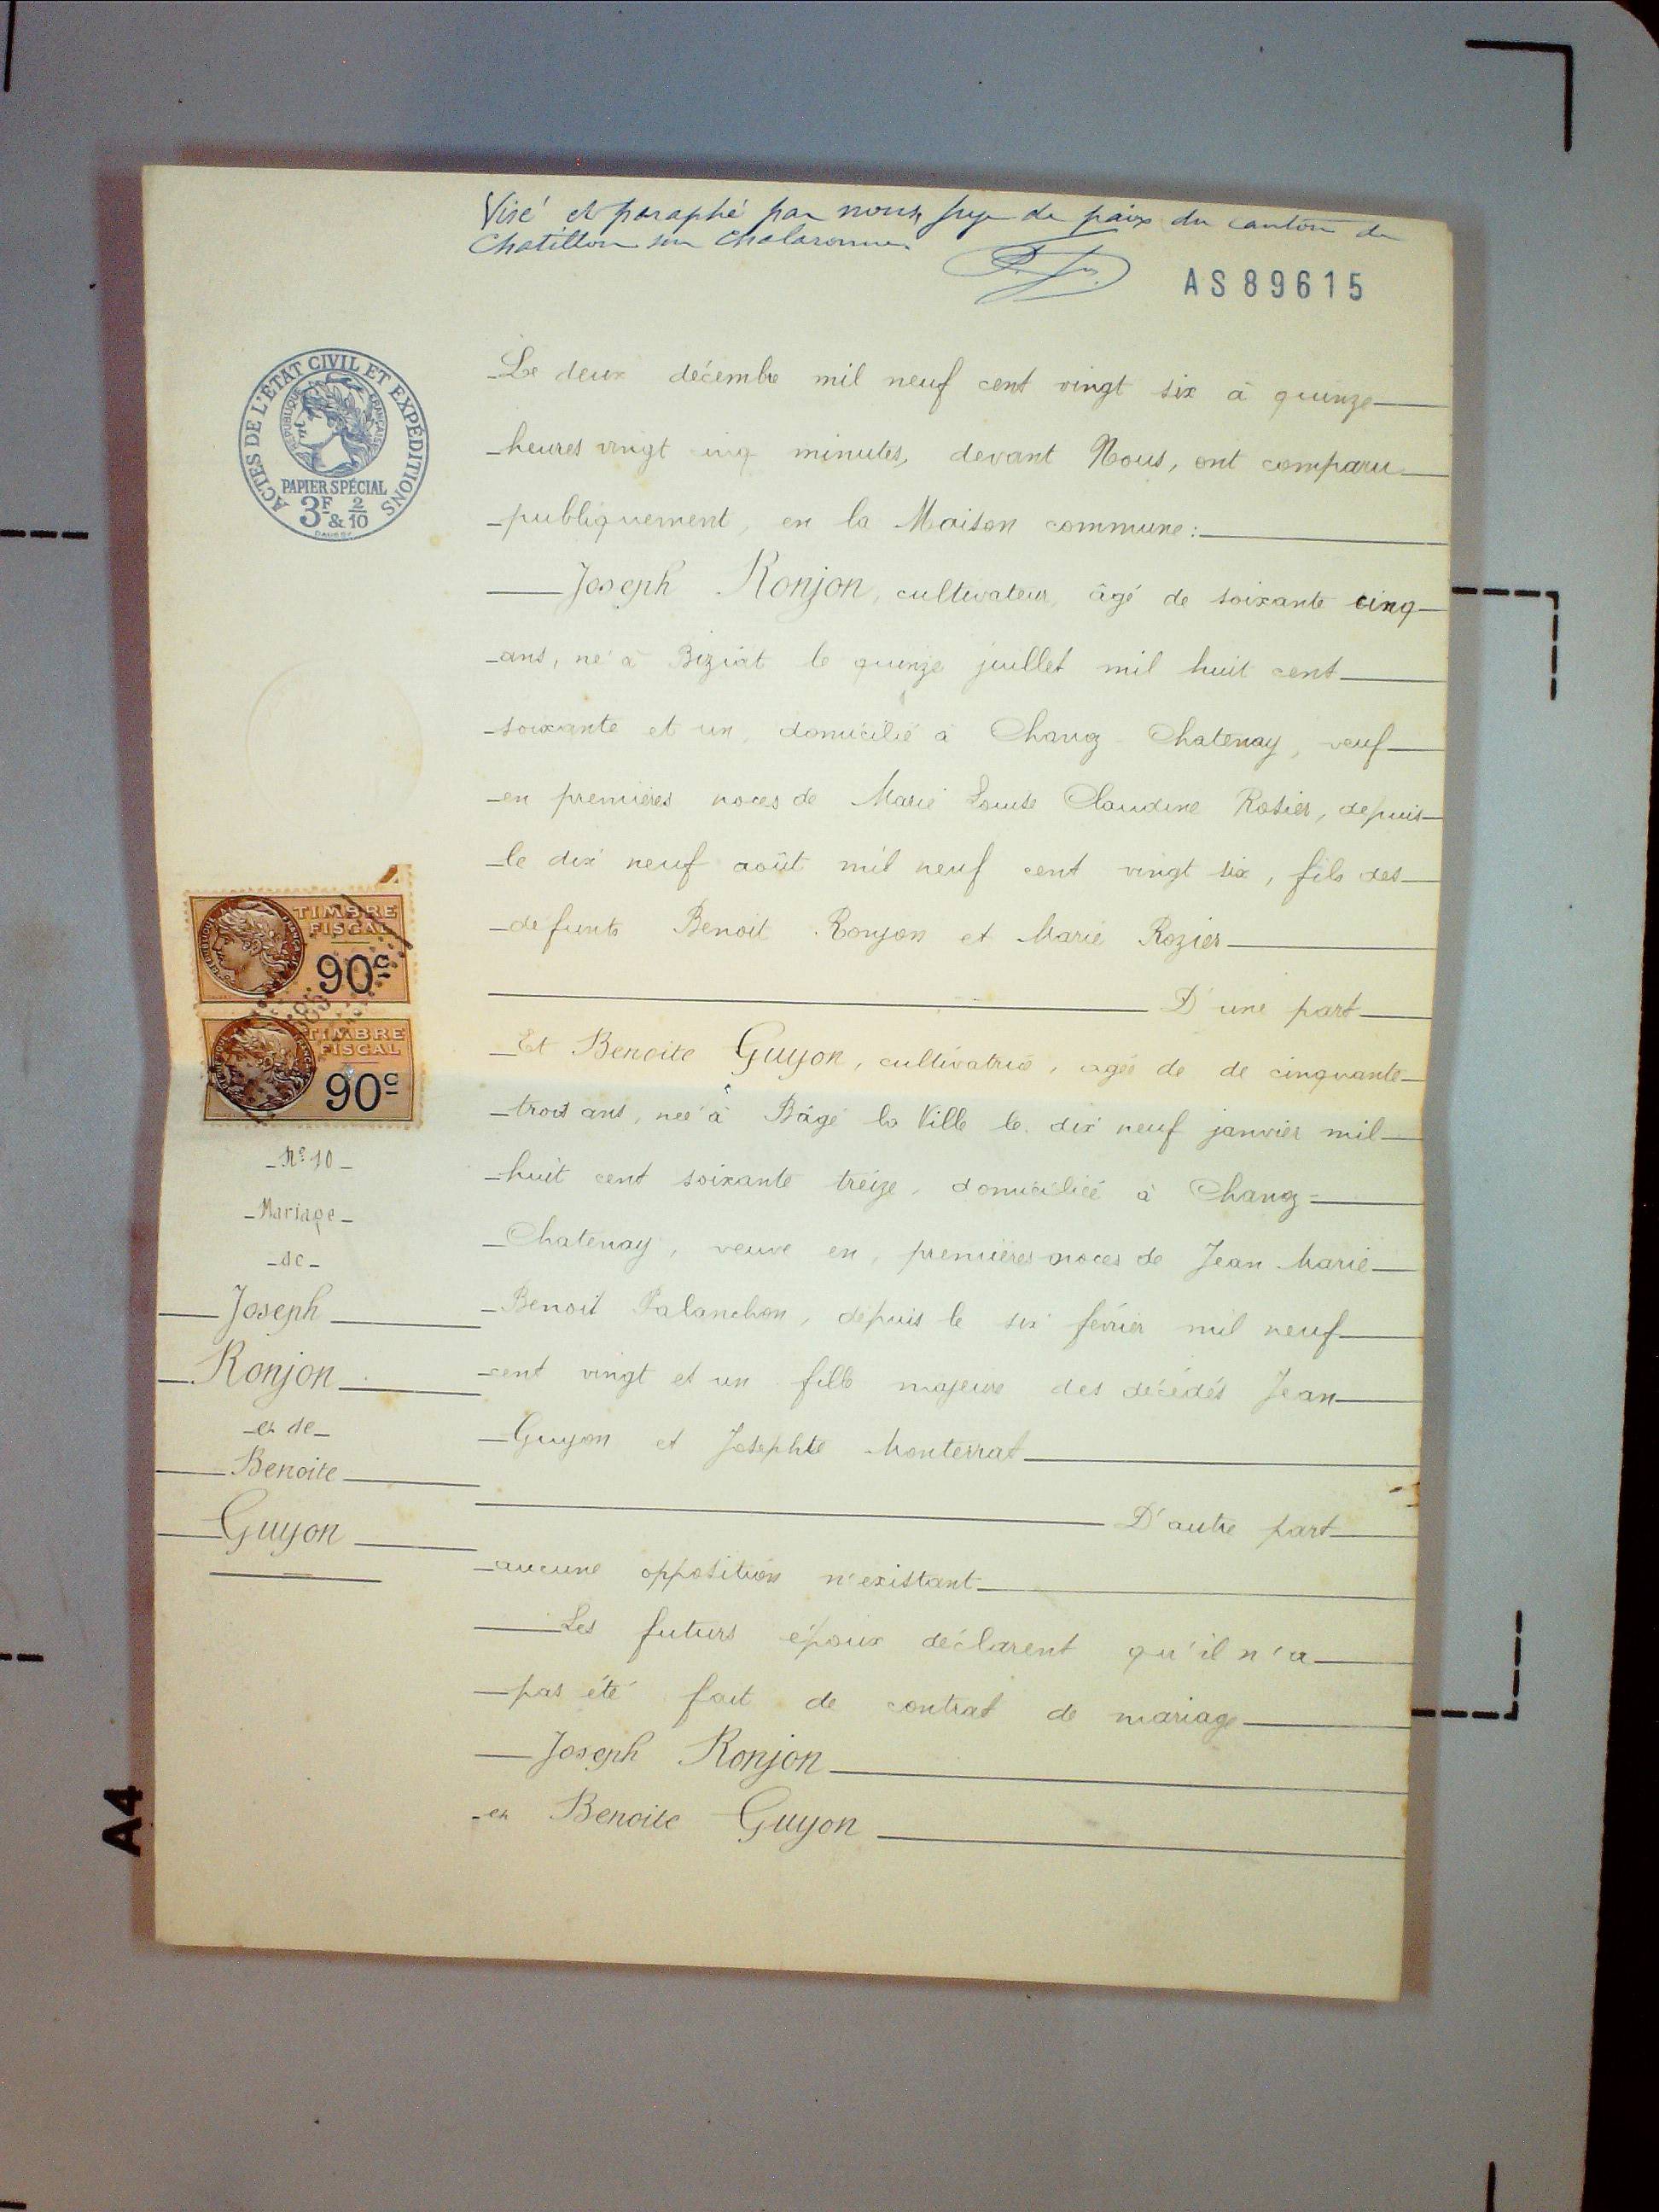 Visé et paraphé par nous, juge de paix du canton de
Chatillon sur Chalaronne.
AS89615
ACTES DE L'ÉTAT CIVIL ET EXPÉDITIONS
RÉPUBLIQUE FRANÇAISE
PAPIER SPÉCIAL
3F & 2/10
Le deux décembre mil neuf cent vingt six à quinze
heures vingt cinq minutes, devant Nous, ont comparu
publiquement, en la Maison commune:
Joseph Ronjon, cultivateur, âgé de soixante cinq
ans, né à Biziat le quinze juillet mil huit cent
soixante et un, domicilié à Chanoz Chatenay, veuf
en premières noces de Marie Louise Claudine Rosier, depuis
le dix neuf août mil neuf cent vingt six, fils des
défunts Benoit Ronjon et Marie Rozier
D'une part
Et Benoite Guyon, cultivatrice, agée de de cinquante
trois ans, née à Bâgé la Ville le dix neuf janvier mil
huit cent soixante treize, domiciliée à Chanoz-
Chatenay, veuve en premières noces de Jean Marie
Benoit Palanchon, depuis le six février mil neuf
cent vingt et un fille majeure des décédés Jean
Guyon et Josephte Monterrat
D'autre part
aucune opposition n'existant
Les futurs époux déclarent qu'il n'a
pas été fait de contrat de mariage
Joseph Ronjon
et Benoite Guyon
TIMBRE
FISCAL
90c
TIMBRE
FISCAL
90c
N° 10
Mariage
de
Joseph
Ronjon
et de
Benoite
Guyon
A4